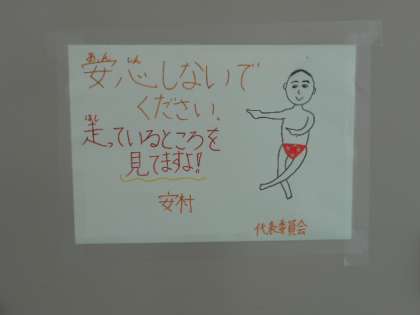 あんしん
安心しないで
ください、
はし
走っているところを
見てますよ!!
安村
代表委員会